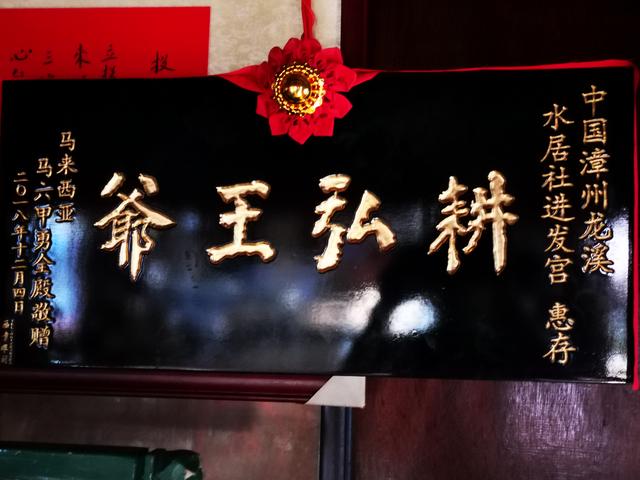 中国漳州龙溪
水居社进发宫 惠存
耕弘王爺
马来西亚
马六甲勇全殿敬赠
二〇一八年十二月四日